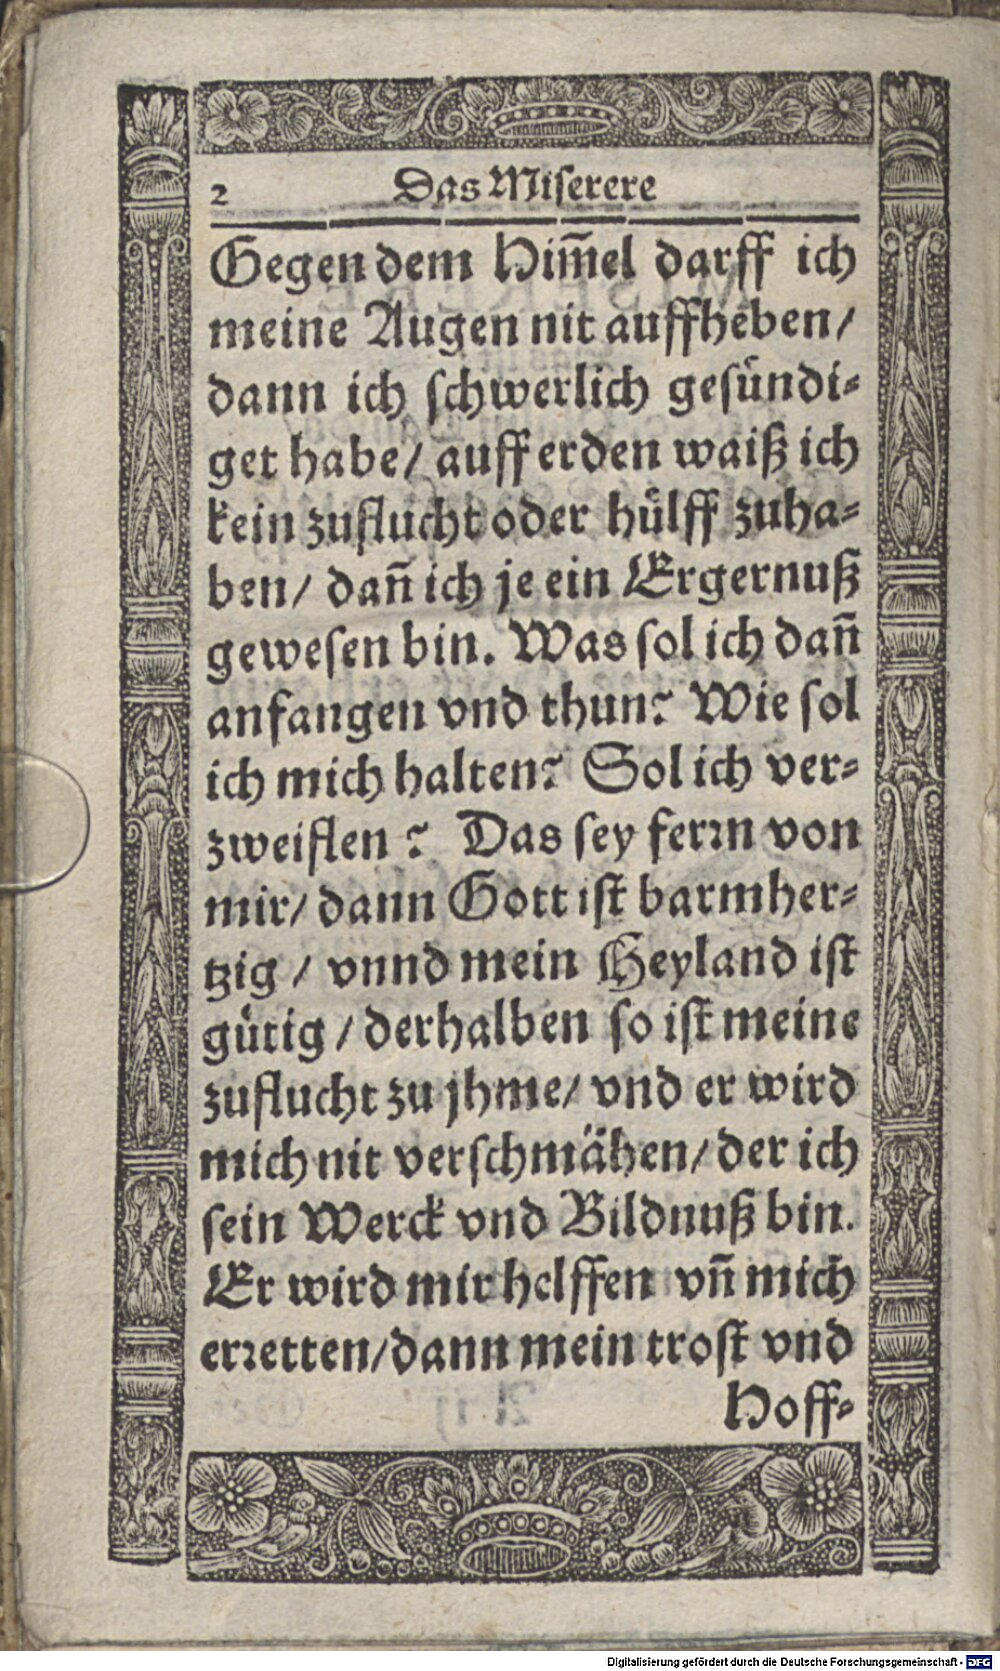 2 Das Miserere
Gegen dem Him̃el darff ich
meine Augen nit auffheben/
dann ich schwerlich gesündi-
get habe/ auff erden waiß ich
kein zuflucht oder hülff zuha-
ben/ dañ ich je ein Ergernuß
gewesen bin. Was sol ich dañ
anfangen vnd thun? Wie sol
ich mich halten? Sol ich ver-
zweiflen? Das sey ferꝛn von
mir/ dann Gott ist barmher-
tzig/ vnnd mein Heyland ist
gütig/ derhalben so ist meine
zuflucht zu jhme/ vnd er wird
mich nit verschmähen/ der ich
sein Werck vnd Bildnuß bin.
Er wird mir helffen vñ mich
erꝛetten/ dann mein trost vnd
Hoff-
Digitalisierung gefördert durch die Deutsche Forschungsgemeinschaft - DFG